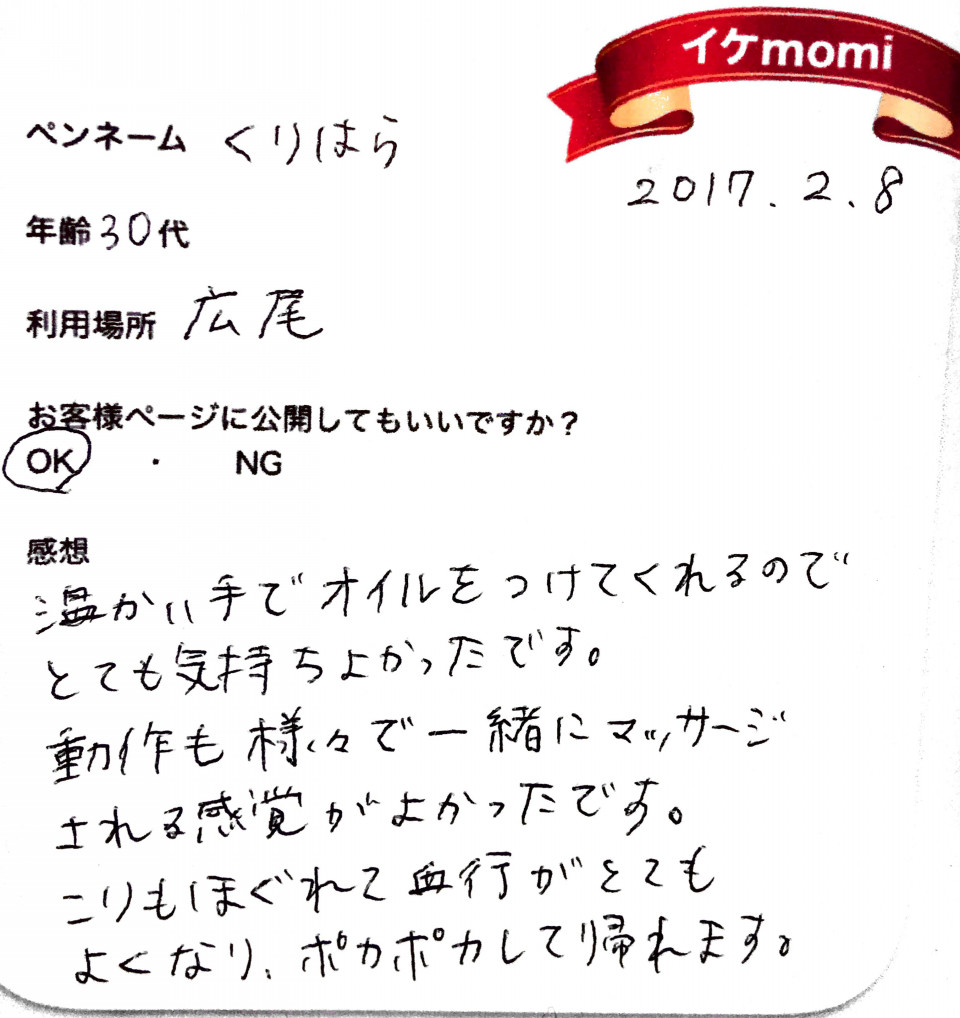 イケmomi
ペンネーム くりはら
2017.2.8
年齢30代
利用場所 広尾
お客様ページに公開してもいいですか?
OK ・ NG
感想
温かい手でオイルをつけてくれるので
とても気持ちよかったです。
動作も様々で一緒にマッサージ
される感覚がよかったです。
こりもほぐれて血行がとても
よくなり、ポカポカして帰れます。